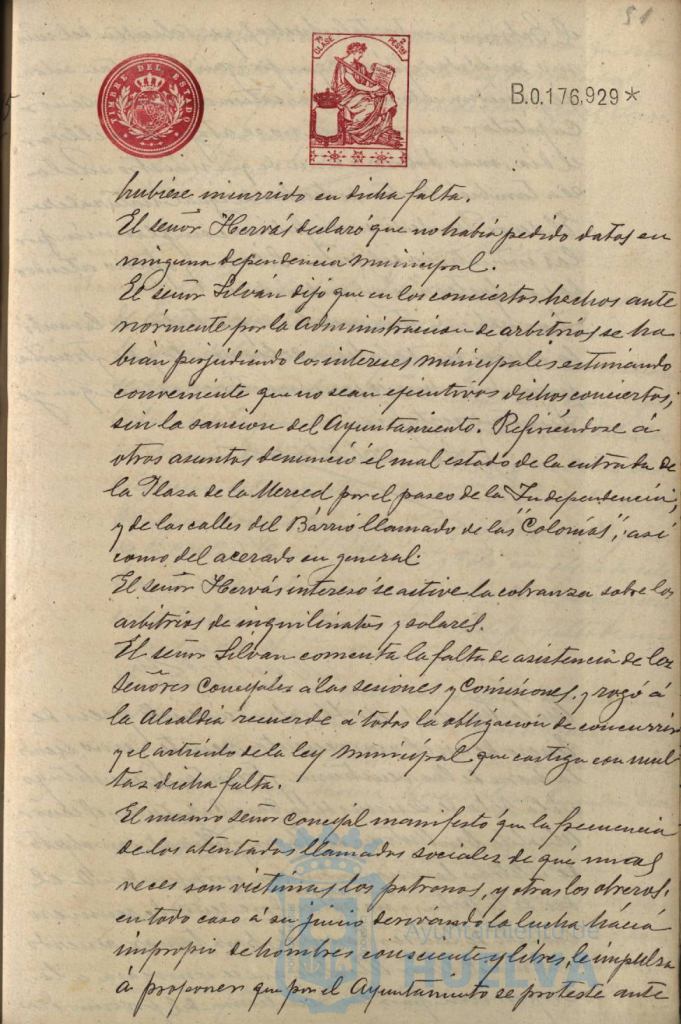 51
TIMBRE DEL ESTADO
7ª CLASE 2 PESETAS
B.0.176,929*
hubiese incurrido en dicha falta.
El señor Hervás declaró que no había pedido datos en
ninguna dependencia municipal.
El señor Silván dijo que en los conciertos hechos ante
riormente por la Administracion de arbitrios se ha
bian perjudicado los intereses municipales estimando
conveniente que no sean ejecutivos dichos conciertos,
sin la sancion del Ayuntamiento. Refiriéndose á
otros asuntos denunció el mal estado de la entrada de
la Plaza de la Merced por el paseo de la Independencia,
y de las calles del Bárrio llamado de las "Colonias", así
como del acerado en general.
El señor Hervás interesó se active la cobranza sobre los
arbitrios de inquilinatos y solares.
El señor Silván comenta la falta de asistencia de los
señores Concejales á las sesiones y Comisiones, y rogó á
la Alcaldia recuerde á todos la obligación de concurrir
y el artículo de la ley Municipal que castiga con mul
tas dicha falta.
El mismo señor Concejal manifestó que la frecuencia
de los atentados llamados sociales de que unas
veces son victimas los patronos, y otras los obreros,
en todo caso á su juicio derivando la lucha hácia
impropio de hombres consciente y libres, le impulsa
á proponer que por el Ayuntamiento se proteste ante
Ayuntamiento de
HUELVA